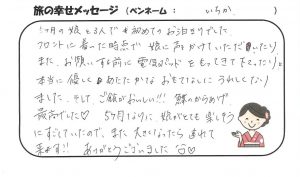 旅の幸せメッセージ (ペンネーム: いちか )
5ヶ月の娘も含んで 初めてのお泊まりでした
フロントに着いた時点で 娘に声かけていただいたり
また、お願いする前に 電気 もってきて下さったり
本当に優しく あたたかな おもてなしに うれしくなり
ました。そして ご飯がおいしい!! 鯛のからあげ
最高でした♡ 5ヶ月なりに 娘がとても楽しそう
にすごしていたので、また 大きくなったら 連れて
来ます!! ありがとうございました